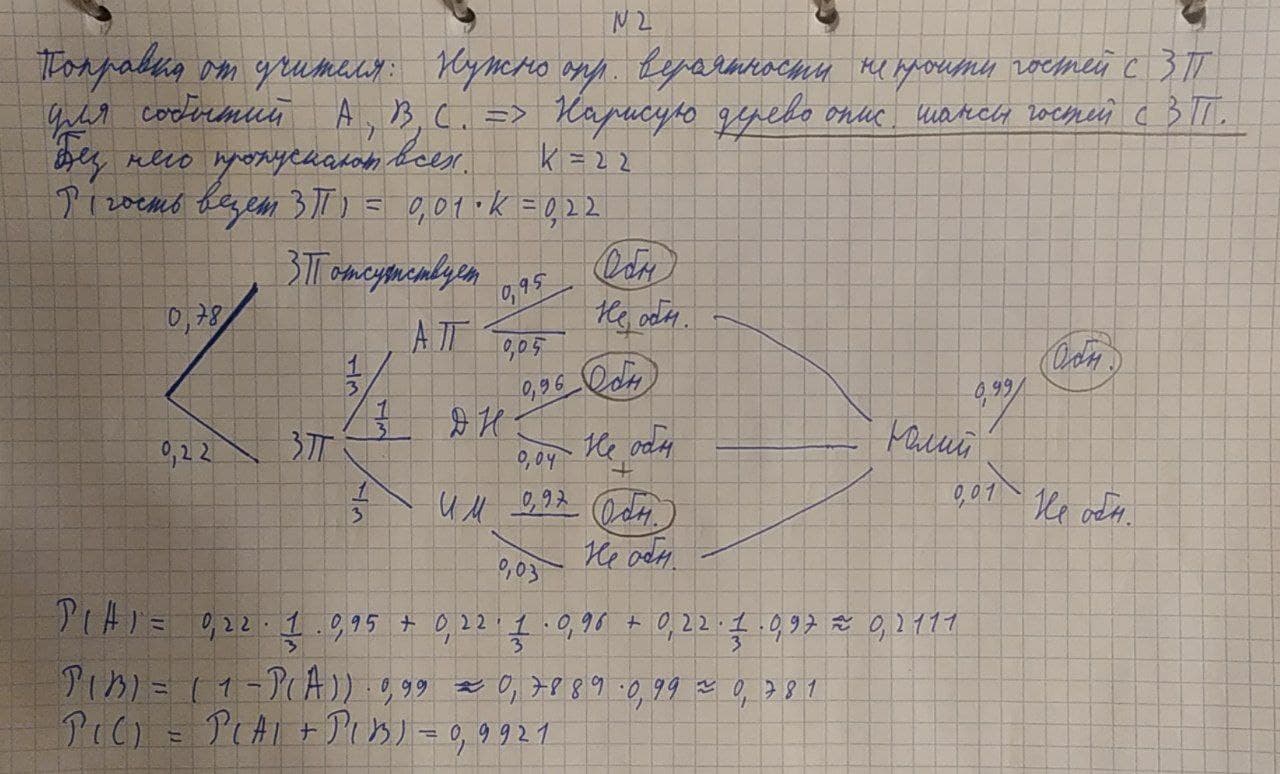 №2
Поправка от учителя: Нужно опр. вероятности не пройти гостей с ЗП
для событий А, В, С. => Нарисую дерево опис. шансы гостей с ЗП.
Без него пропускают всех. K = 22
P(гость везет ЗП) = 0,01 · K = 0,22
ЗП отсутствует
0,78
0,22
ЗП
1/3
1/3
1/3
АП
0,95
Обн
0,05
Не обн.
+
ДН
0,96
Обн
0,04
Не обн
+
ИМ
0,97
Обн.
0,03
Не обн.
Юлий
0,99
Обн.
0,01
Не обн.
P(A) = 0,22 · 1/3 · 0,95 + 0,22 · 1/3 · 0,96 + 0,22 · 1/3 · 0,97 ≈ 0,2111
P(B) = (1 - P(A)) · 0,99 ≈ 0,7889 · 0,99 ≈ 0,781
P(C) = P(A) + P(B) = 0,9921